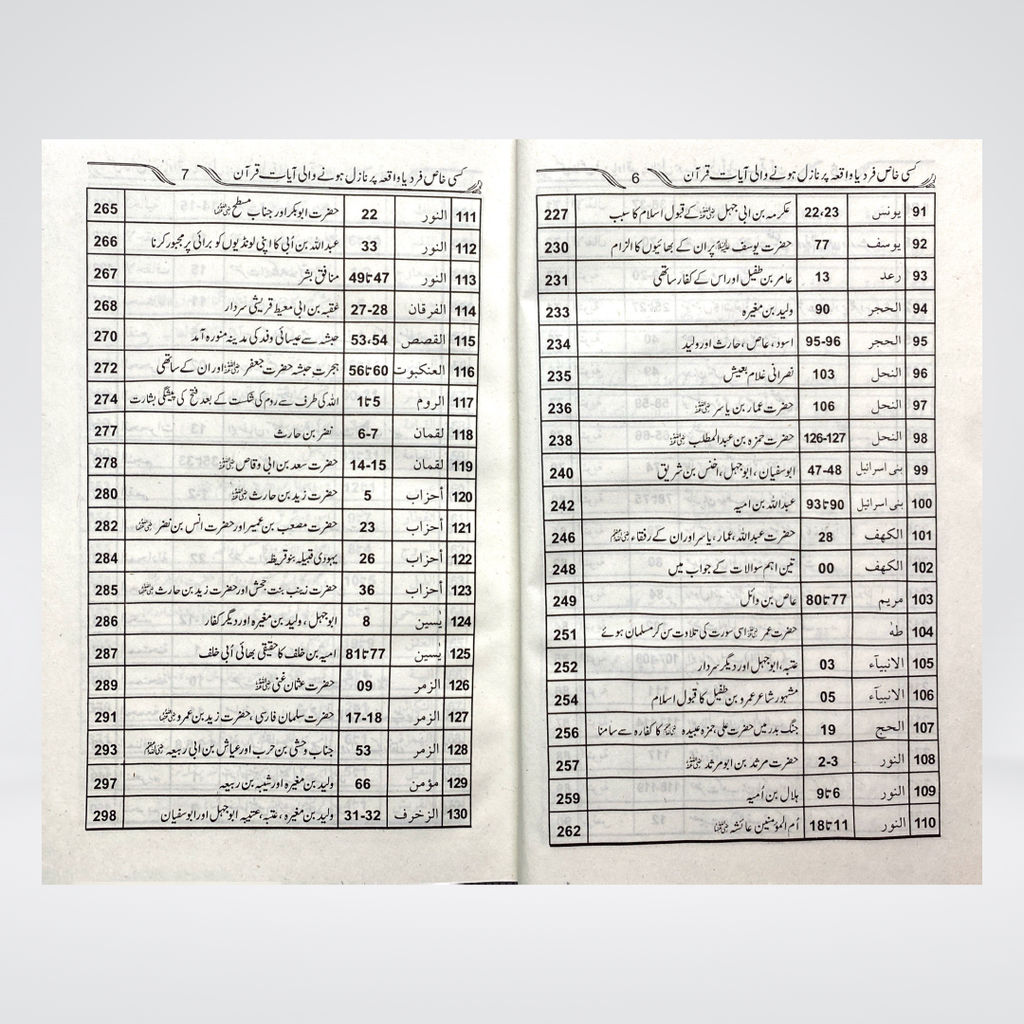 کسی خاص فرد یا واقعہ پر نازل ہونے والی آیات قرآن 6
91 یونس 22،23 عکرمہ بن ابی جہل ؓ کے قبول اسلام کا سبب 227
92 یوسف 77 حضرت یوسف ؑ پر ان کے بھائیوں کا الزام 230
93 رعد 13 عامر بن طفیل اور اس کے کفار ساتھی 231
94 الحجر 90 ولید بن مغیرہ 233
95 الحجر 95-96 اسود، عاص، حارث اور ولید 234
96 النحل 103 نصرانی غلام بعیش 235
97 النحل 106 حضرت عمار بن یاسر ؓ 236
98 النحل 126-127 حضرت حمزہ بن عبدالمطلب ؓ 238
99 بنی اسرائیل 47-48 ابوسفیان، ابوجہل، اخنس بن شریق 240
100 بنی اسرائیل 90 تا 93 عبداللہ بن امیہ 242
101 الکھف 28 حضرت عبداللہ، عمار، یاسر اور ان کے رفقاء ؓ 246
102 الکھف 00 تین اہم سوالات کے جواب میں 248
103 مریم 77 تا 80 عاص بن وائل 249
104 طہٰ حضرت عمر ؓ اسی سورت کی تلاوت سن کر مسلمان ہوئے 251
105 الانبیآء 03 عتبہ، ابوجہل اور دیگر سردار 252
106 الانبیآء 05 مشہور شاعر عمرو بن طفیل کا قبول اسلام 254
107 الحج 19 جنگ بدر میں حضرت علی حمزہ عبیدہ ؓ کا کفارہ سے سامنا 256
108 النور 2-3 حضرت مرثد بن ابو مرثد ؓ 257
109 النور 6 تا 9 ہلال بن اُمیہ 259
110 النور 11 تا 18 اُم المؤمنین عائشہ ؓ 262
کسی خاص فرد یا واقعہ پر نازل ہونے والی آیات قرآن 7
111 النور 22 حضرت ابوبکر اور جناب مسطح ؓ 265
112 النور 33 عبداللہ بن اُبی کا اپنی لونڈیوں کو برائی پر مجبور کرنا 266
113 النور 47 تا 49 منافق بشر 267
114 الفرقان 27-28 عقبہ بن ابی معیط قریشی سردار 268
115 القصص 53،54 حبشہ سے عیسائی وفد کی مدینہ منورہ آمد 270
116 العنکبوت 60 تا 56 ہجرت حبشہ حضرت جعفر ؓ اور ان کے ساتھی 272
117 الروم 5 تا 1 اللہ کی طرف سے روم کی شکست کے بعد فتح کی پیشگی بشارت 274
118 لقمان 6-7 نضر بن حارث 277
119 لقمان 14-15 حضرت سعد بن ابی وقاص ؓ 278
120 أحزاب 5 حضرت زید بن حارث ؓ 280
121 أحزاب 23 حضرت مصعب بن عمیر اور حضرت انس بن نضر ؓ 282
122 أحزاب 26 یہودی قبیلہ بنو قریظہ 284
123 أحزاب 36 حضرت زینب بنت جحش اور حضرت زید بن حارث ؓ 285
124 یٰسین 8 ابوجہل، ولید بن مغیرہ اور دیگر کفار 286
125 یٰسین 77 تا 81 امیہ بن خلف کا حقیقی بھائی اُبی خلف 287
126 الزمر 09 حضرت عثمان غنی ؓ 289
127 الزمر 17-18 حضرت سلمان فارسی، حضرت زید بن عمرو ؓ 291
128 الزمر 53 جناب وحشی بن حرب اور عیاش بن ابی ربیعہ ؓ 293
129 مؤمن 66 ولید بن مغیرہ اور شیبہ بن ربیعہ 297
130 الزخرف 31-32 ولید بن مغیرہ، عتبہ، عتیبہ ابوجہل اور ابوسفیان 298